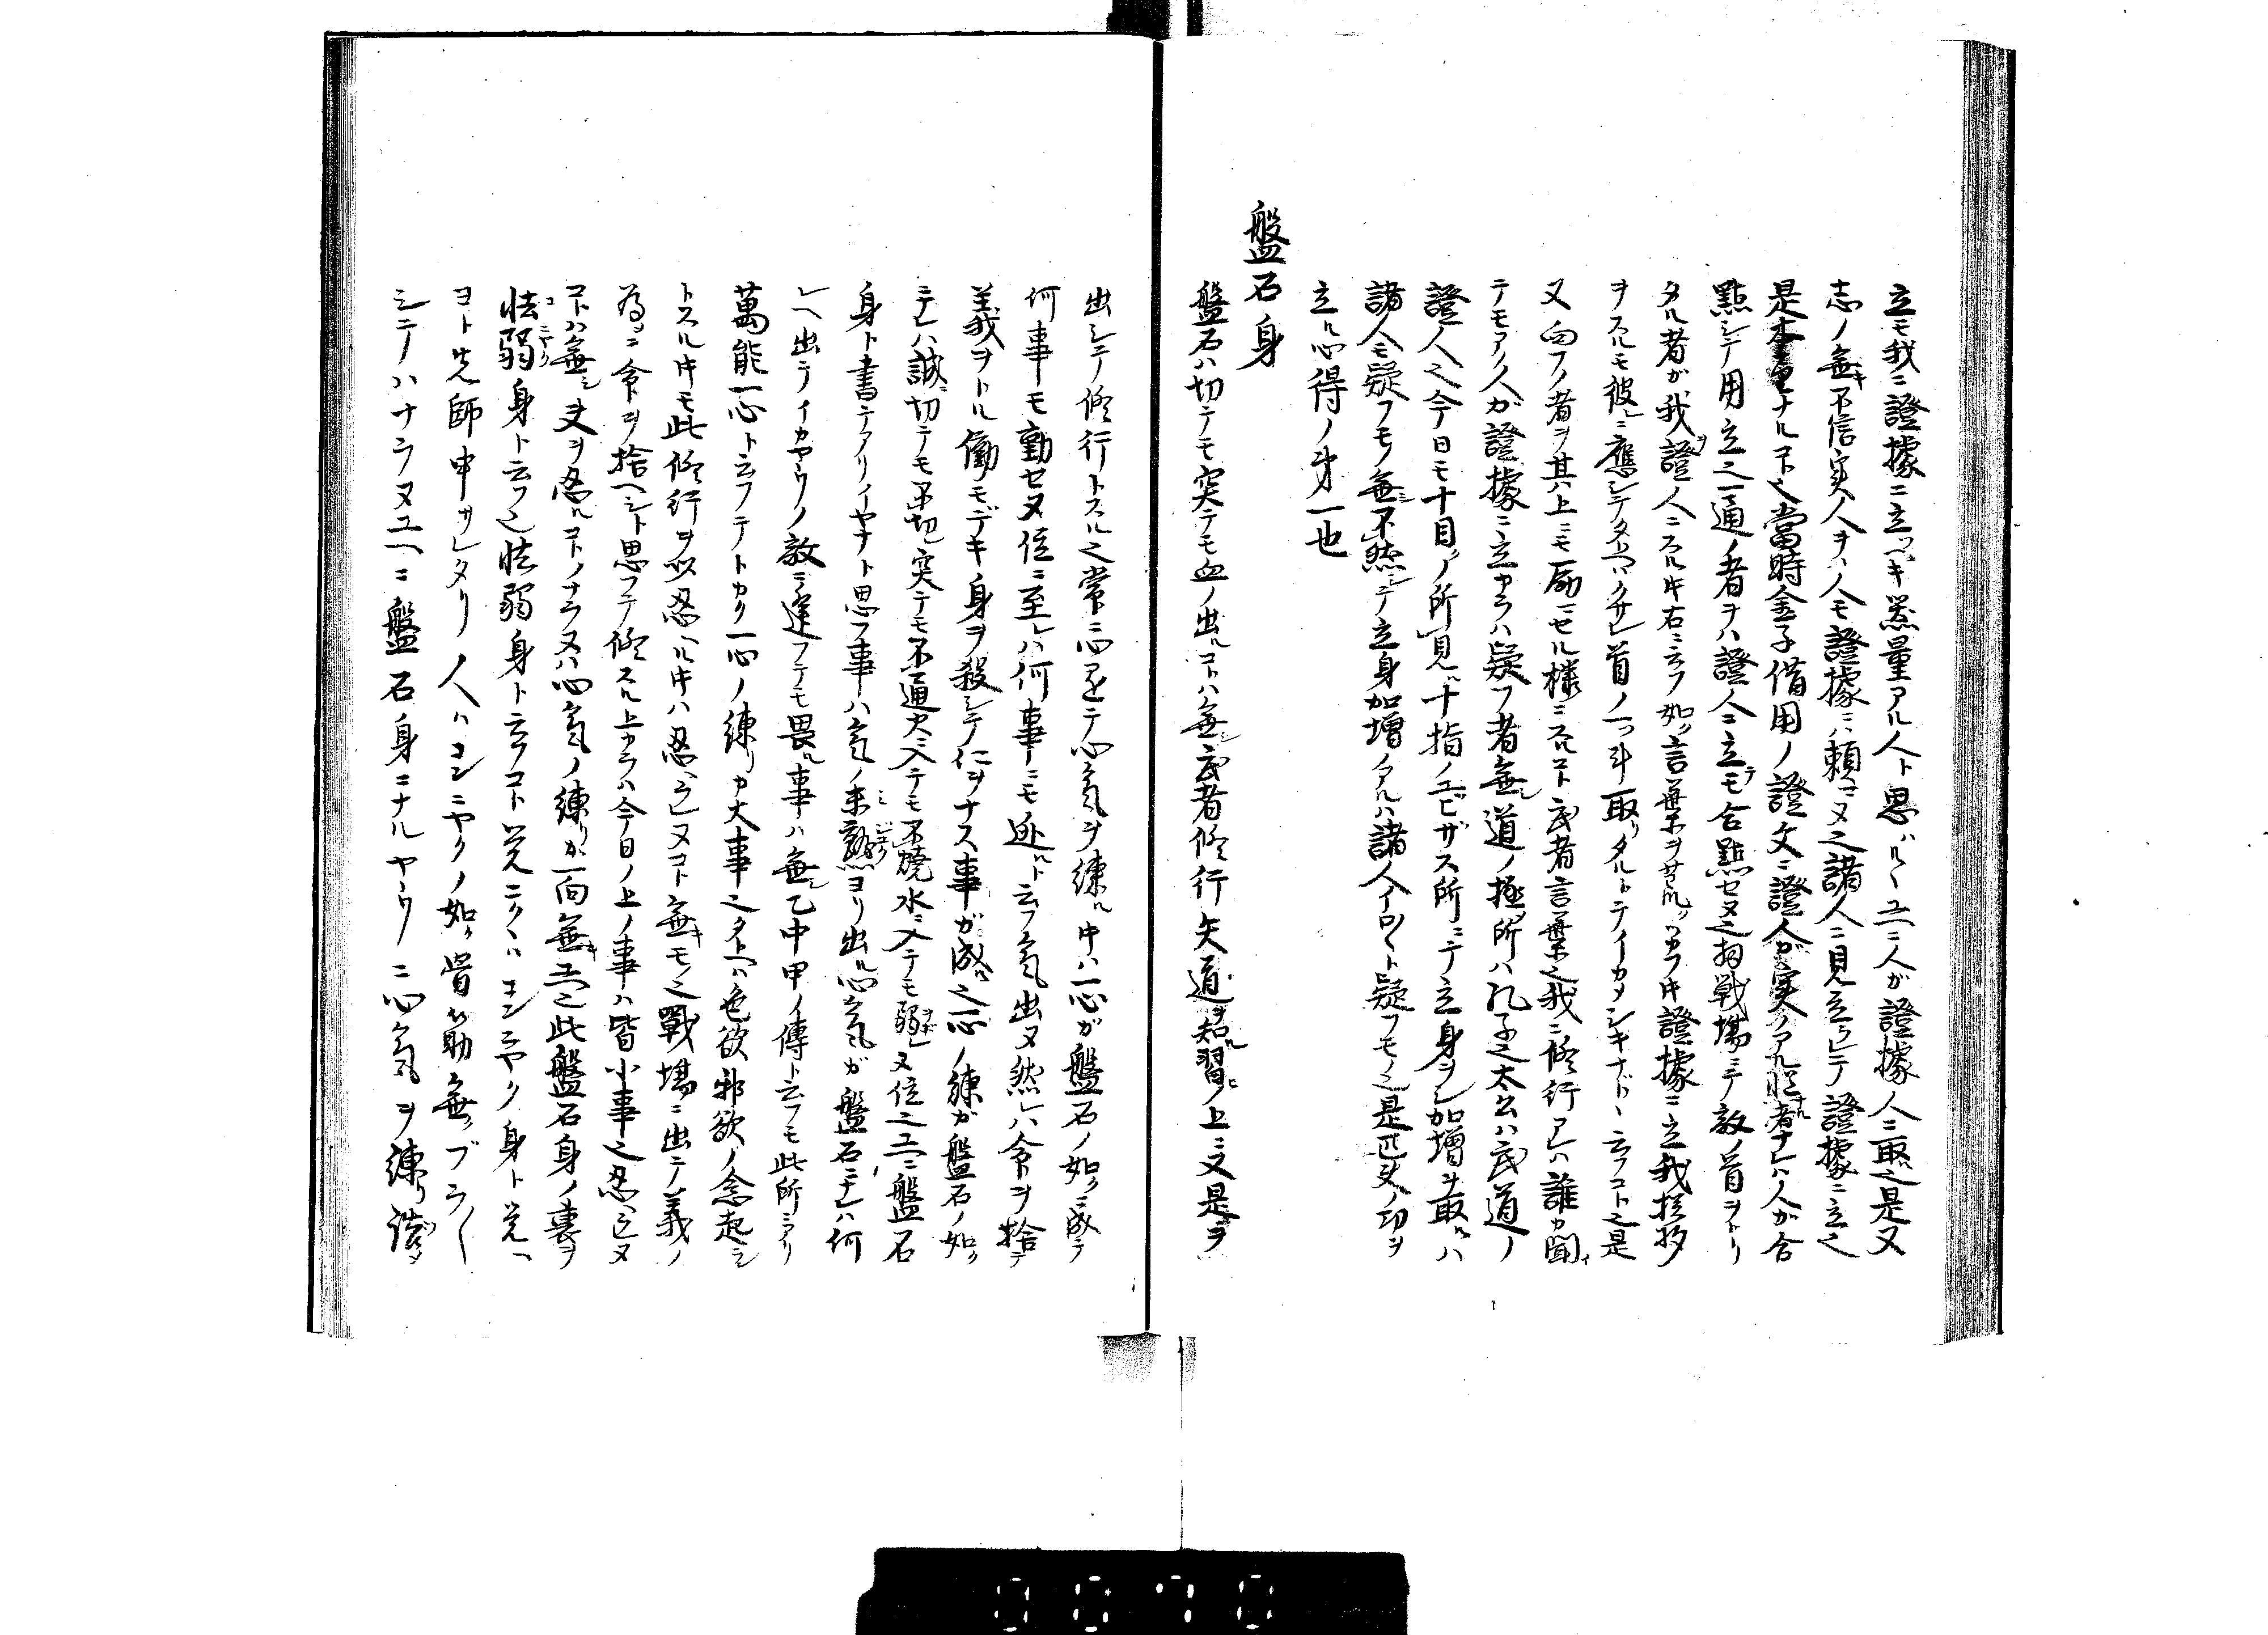 立モ我ニ證據ニ立ツベキ器量アル人ト思ハルヽユヘニ人ガ證據人ニ取ル之是又
志ノ無キ不信実人ヲハ人モ證據ニハ頼マヌ之諸人ニ見立ラレテ證據ニ立之
是本望ナルコト之當時金子借用ノ證文ニ證人ガ実ノアル慥ナル者ナレハ人ガ合
點シテ用立之一通ノ者ヲハ證人ニ立テモ合點セヌ之扨戰場ニテ敵ノ首ヲトリ
タル者ガ我ヲ證人ニスル時右ニ云フ如ク言葉ヲ 時證據ニ立我挨拶
ヲスルモ彼レニ應シテタトヘハ 首ノ一ツ斗取リタルトテイカメシキナドヽ云フコト之是
又向フノ者ヲ其ハ上ニモ励マセル様ニスルコト武者言葉之我ニ修行アレハ誰カ聞イ
テモアノ人ガ證據ニ立カラハ疑フ者無シ道ノ極所ハ孔子之太公ハ武道ノ
證人之今日モ十目ノ所見ル十指ノユビザス所ニテ立身ヲシ加增ヲ取ルハ
諸人モ疑フモノ無シ不然シテ立身加增ノアルハ諸人イロ〳〵ト疑フモノ之是匹夫ノ功ヲ
立ル心得ノ第一也
盤石身
盤石ハ切テモ突テモ血ノ出ルコトハ無シ武者修行矢道ヲ知ル習ヒノ上ニ又是ヲ
出シテ修行トスル之常ニ心 テ心氣ヲ練ル時ハ一心ガ盤石ノ如クニ成テ
何事モ動セヌ位ニ至レハ何事ニモ逃ルト云フ氣出ヌ然レハ命ヲ捨テ
義ヲトル働モデキ身ヲ殺シテ仁ヲナス事ガ成ル之一心ノ練ガ盤石ノ如ク
ニナレハ誠ニ切テモ不切突テモ不通火ニ入テモ不燒水ニ入テモ溺レヌ位之ユヘニ盤石
身ト書テアリイヤナト思フ事ハ氣ノ未熟ヨリ出ル心氣ガ盤石ニナレハ何
レヘ出テイカヤウノ敵ニ逢フテモ畏ル事ハ無シ乙中甲ノ傳ト云フモ此所ニアリ
萬能一心ト云フテトカク一心ノ練リカ大事之タトヘハ色欲邪欲ノ念起ラン
トスル時モ此修行ヲ以忍ヘル時ハ忍ヘラレヌコト無キモノ之戰場ニ出テ義ノ
為メニ命ヲ捨ヘシト思フテ修スル上カラハ今日ノ上ノ事ハ皆小事之忍ヘラレヌ
コトハ無シ夫ヲ忍ルコトノナラヌハ心氣ノ練リガ一向無キユヘ之此盤石身ノ裏ヲ
怯弱身ト云フ之怯弱身ト云フコト覚ニクヽハコンニヤク身ト覚ヘ
ヨト先師申サレタリ人ハコンニヤクノ如ク背筋無クブラ〳〵
シテハナラヌユヘニ盤石身ニナルヤウニ心氣ヲ練リ詰メ